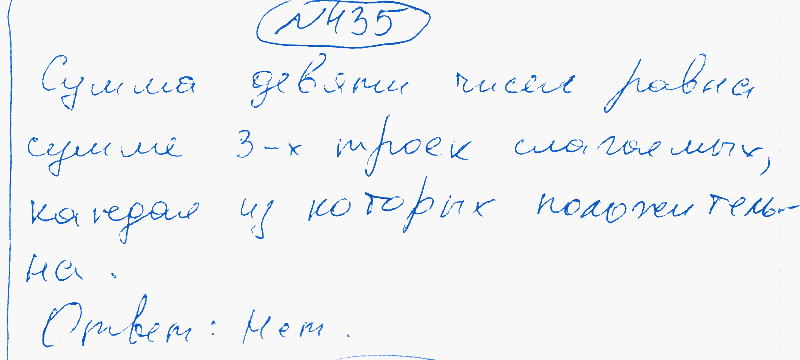 №435
Сумма девяти чисел равна
сумме 3-х троек слагаемых,
каждая из которых положитель-
на.
Ответ: Нет.